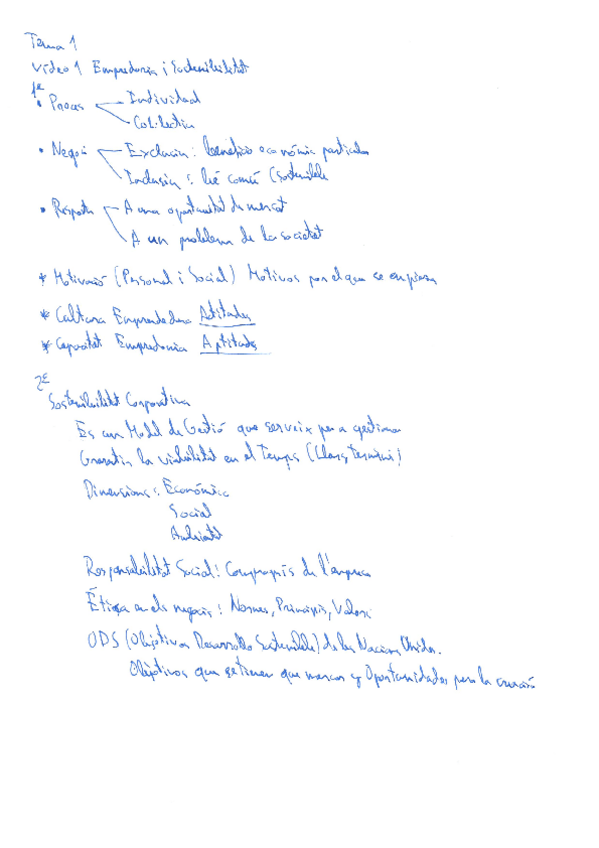 Tema 1
Vídeo 1 Empredoria i Sostenibilitat
1ª
• Proces Individual
Col·lectiu
• Negoci Exclusiu: benefici económic particular
Inclusiu: bé comú (sostenible
• Resposta A una oportunitat de mercat
A un problema de la societat
* Motivació (Personal i Social) Motivos por el que se empieza
* Cultura Emprendedora Actitudes
* Capacitat Empredoria Aptitudes
2ª
Sostenibilitat Corporativa
Es un Model de Gestió que serveix per a gestionar
Garantir la viabilitat en el Temps (Llarg Termini)
Dimensions: Económica
Social
Ambiental
Responsabilitat Social: Compromís de l'empresa
Ética en els negocis: Normes, Principis, Valors
ODS (Objetivos Desarrollo Sostenible) de las Naciones Unidas.
Objetivos que se tienen que marcar y Oportunidades para la